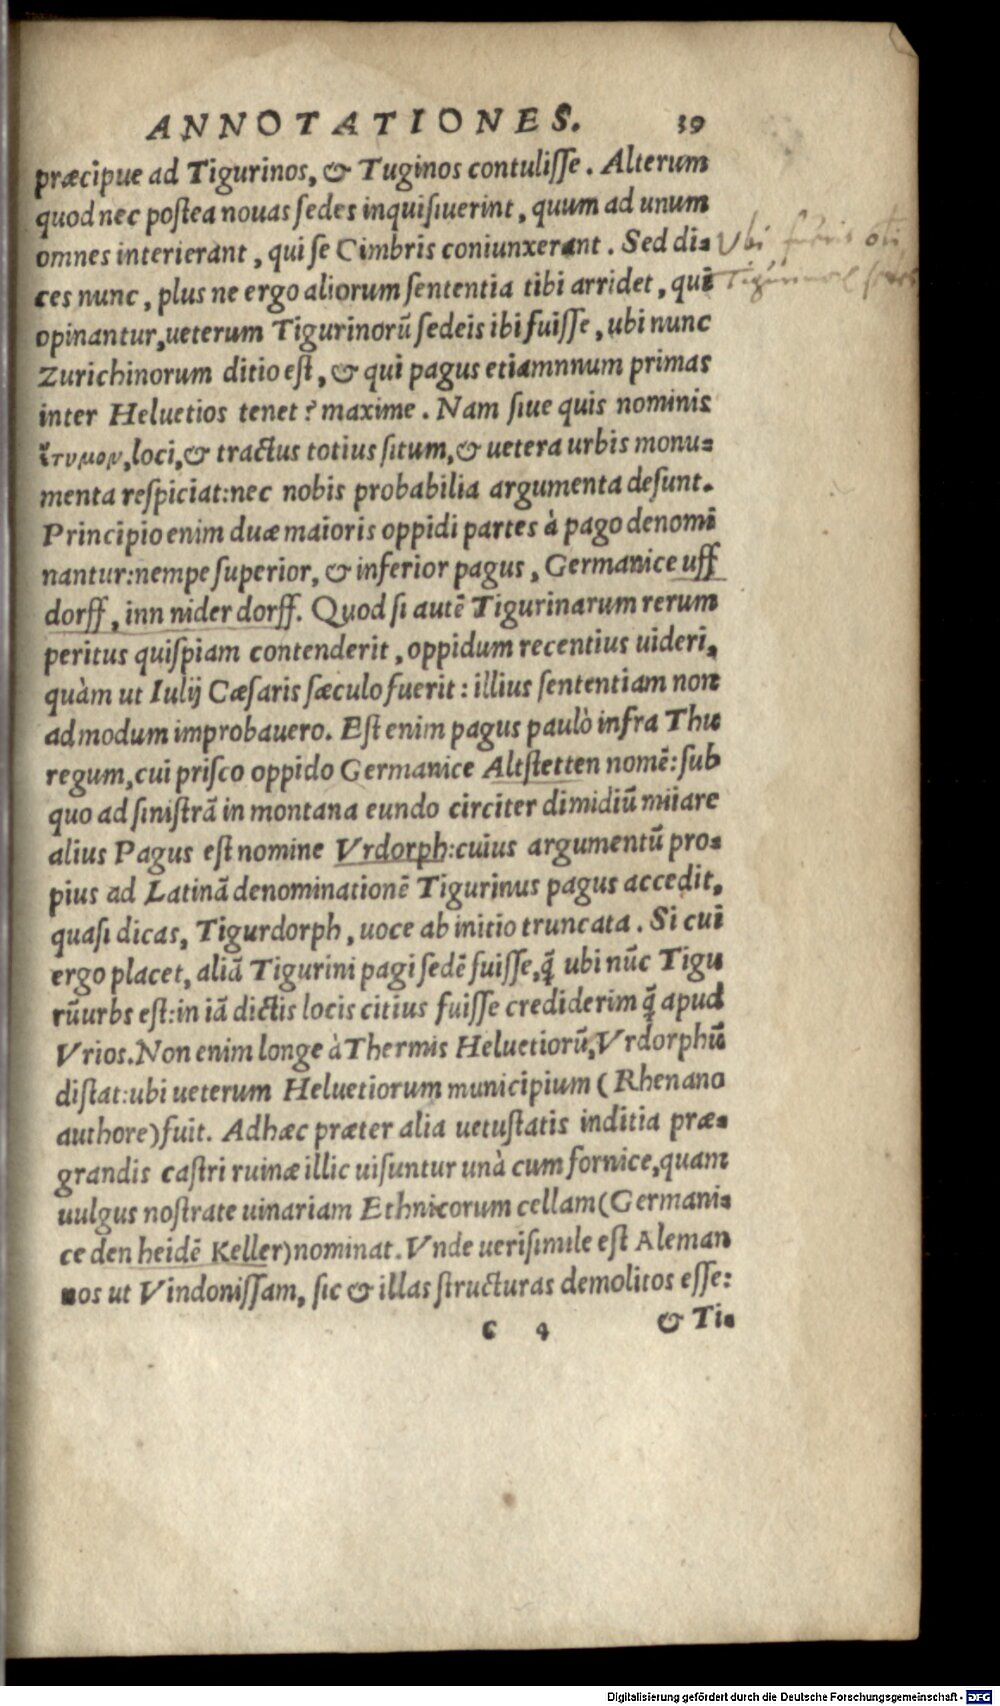 ANNOTATIONES. 39
præcipue ad Tigurinos, & Tuginos contulisse. Alterum
quod nec postea nouas sedes inquisiuerint, quum ad unum
omnes interierant, qui se Cimbris coniunxerant. Sed di-
Vbi
ces nunc, plus ne ergo aliorum sententia tibi arridet, qui
opinantur, ueterum Tigurinorū sedeis ibi fuisse, ubi nunc
Zurichinorum ditio est, & qui pagus etiamnnum primas
inter Heluetios tenet? maxime. Nam siue quis nominis
ἔτυμον, loci, & tractus totius situm, & uetera urbis monu-
menta respiciat: nec nobis probabilia argumenta desunt.
Principio enim duæ maioris oppidi partes à pago denomi
nantur: nempe superior, & inferior pagus, Germanice uff
dorff, inn nider dorff. Quod si autē Tigurinarum rerum
peritus quispiam contenderit, oppidum recentius uideri,
quàm ut Iulij Cæsaris sæculo fuerit: illius sententiam non
admodum improbauero. Est enim pagus paulò infra Thu
regum, cui prisco oppido Germanice Altstetten nomē: sub
quo ad sinistrā in montana eundo circiter dimidiū miiare
alius Pagus est nomine Vrdorph: cuius argumentū pro-
pius ad Latinā denominationē Tigurinus pagus accedit,
quasi dicas, Tigurdorph, uoce ab initio truncata. Si cui
ergo placet, aliā Tigurini pagi sedē fuisse, q̄ ubi nūc Tigu
rū urbs est: in iā dictis locis citius fuisse crediderim q̄ apud
Vrios. Non enim longe à Thermis Heluetiorū, Vrdorphū
distat: ubi ueterum Heluetiorum municipium (Rhenano
authore) fuit. Adhæc præter alia uetustatis inditia præ-
grandis castri ruinæ illic uisuntur unà cum fornice, quam
uulgus nostrate uinariam Ethnicorum cellam (Germani-
ce den heidē Keller) nominat. Vnde uerisimile est Aleman
nos ut Vindonissam, sic & illas structuras demolitos esse:
c 4 & Ti-
Digitalisierung gefördert durch die Deutsche Forschungsgemeinschaft - DFG